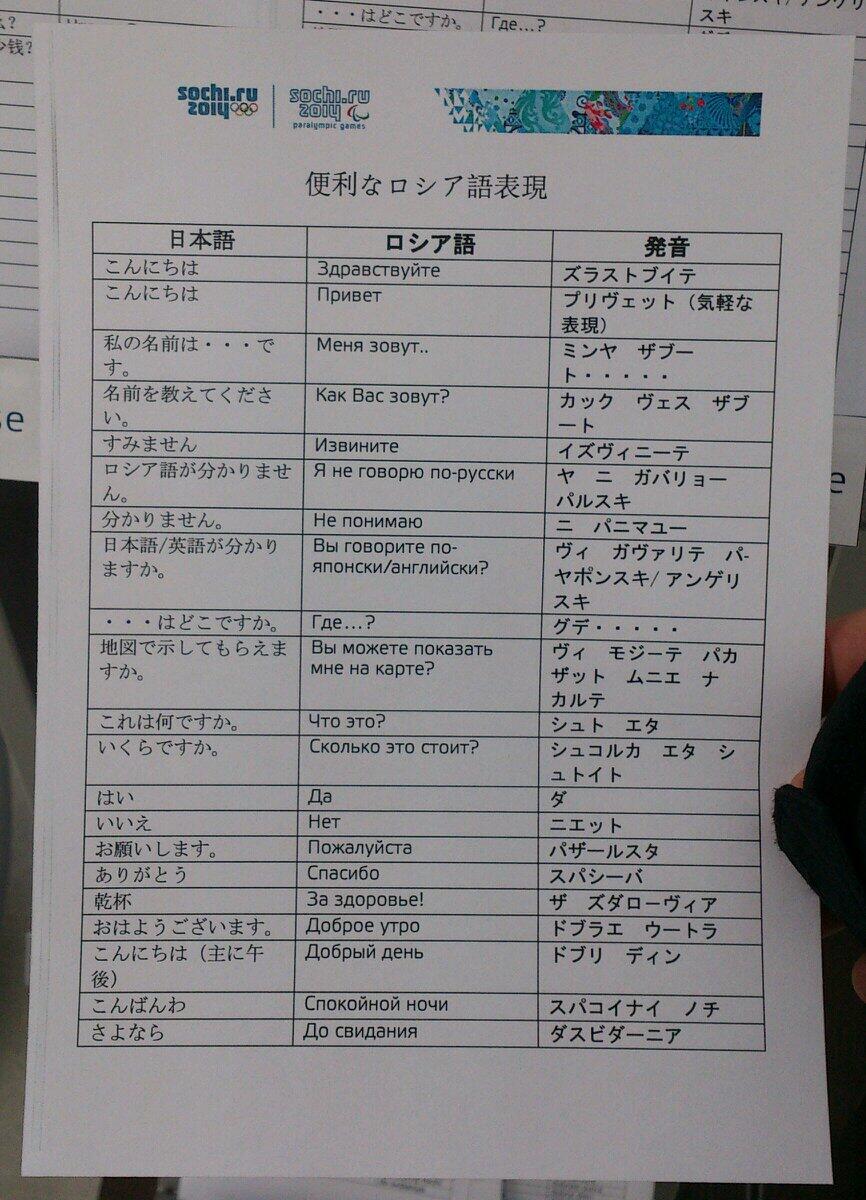 ・・・はどこですか。 Где...?
スキ
sochi.ru
2014
sochi.ru
2014
paralympic games
便利なロシア語表現
日本語 ロシア語 発音
こんにちは Здравствуйте ズラストブイテ
こんにちは Привет プリヴェット（気軽な
表現）
私の名前は・・・で Меня зовут.. ミンヤ ザブー
す。 ト・・・・・
名前を教えてくださ Как Вас зовут? カック ヴェス ザブ
い。 ート
すみません Извините イズヴィニーテ
ロシア語が分かりませ Я не говорю по-русски ヤ ニ ガバリョー
ん。 パルスキ
分かりません。 Не понимаю ニ パニマユー
日本語/英語が分かり Вы говорите по- ヴィ ガヴァリテ パ-
ますか。 японски/английски? ヤポンスキ/ アンゲリ
スキ
・・・はどこですか。 Где...? グデ・・・・・
地図で示してもらえま Вы можете показать ヴィ モジーテ パカ
すか。 мне на карте? ザット ムニエ ナ
カルテ
これは何ですか。 Что это? シュト エタ
いくらですか。 Сколько это стоит? シュコルカ エタ シ
ュトイト
はい Да ダ
いいえ Нет ニエット
お願いします。 Пожалуйста パザールスタ
ありがとう Спасибо スパシーバ
乾杯 За здоровье! ザ ズダローヴィア
おはようございます。 Доброе утро ドブラエ ウートラ
こんにちは（主に午 Добрый день ドブリ ディン
後）
こんばんわ Спокойной ночи スパコイナイ ノチ
さよなら До свидания ダスビダーニア